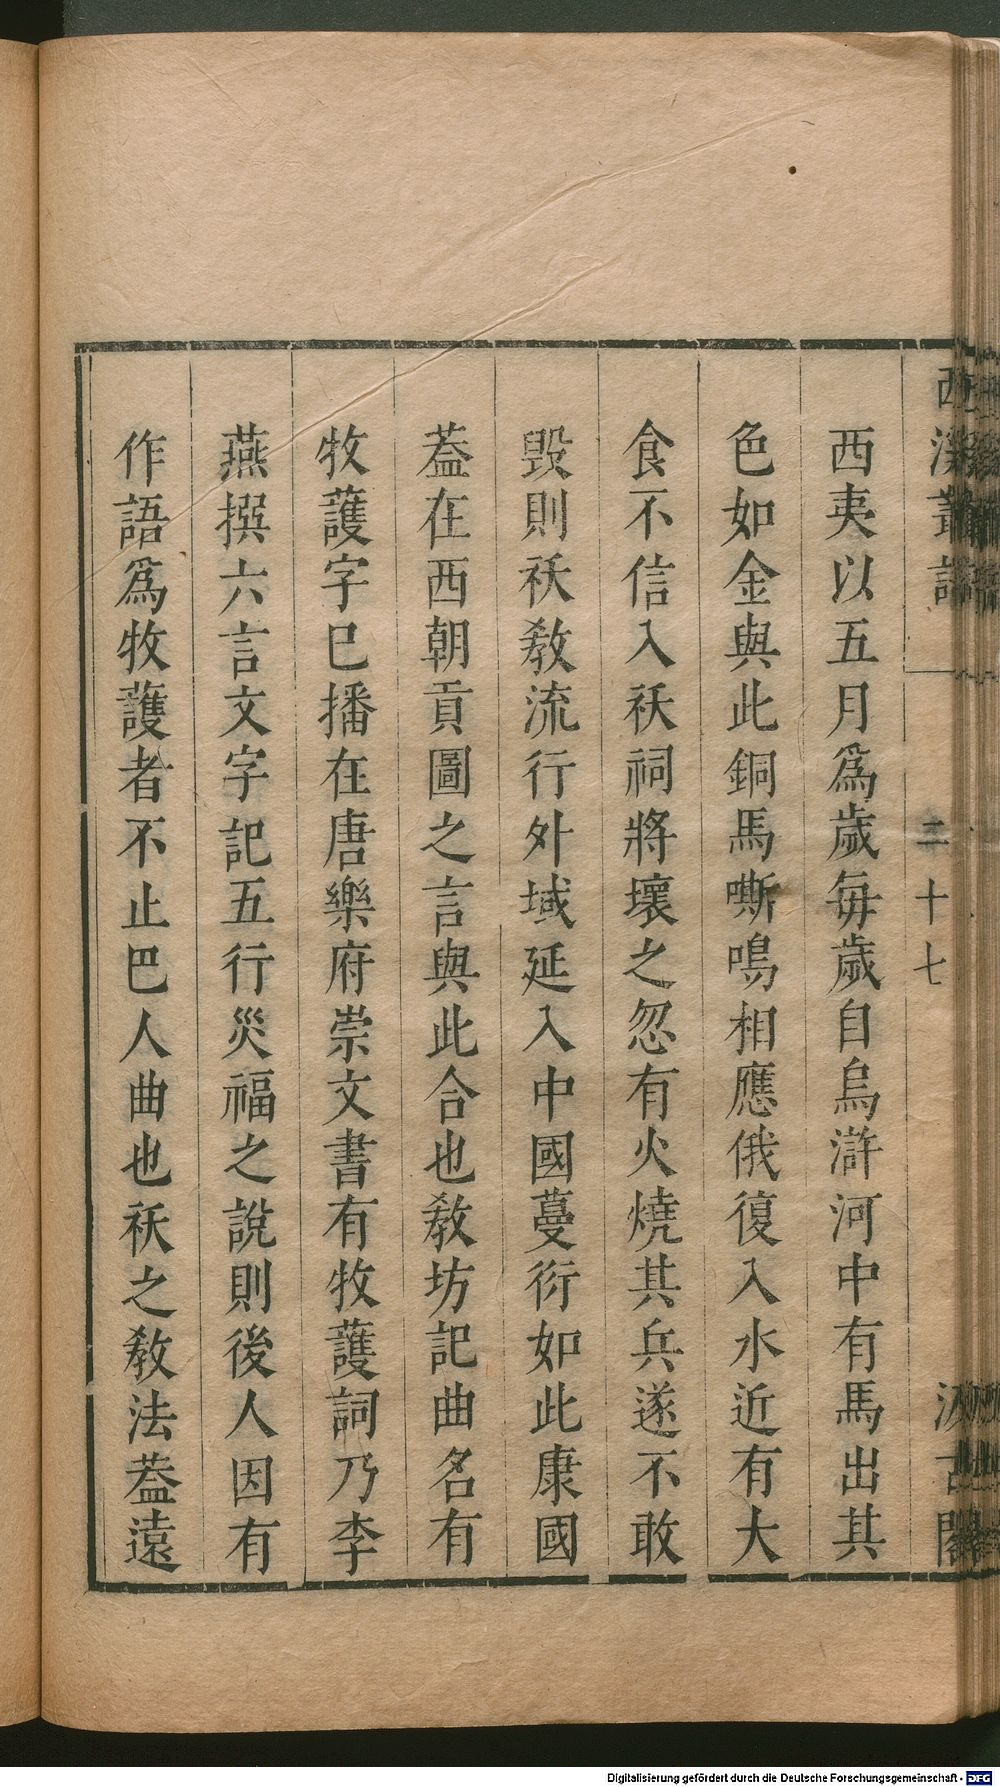 西溪叢語
二十七
汲古閣
西夷以五月爲歲每歲自烏滸河中有馬出其
色如金與此銅馬嘶鳴相應俄復入水近有大
食不信入祆祠將壞之忽有火燒其兵遂不敢
毀則祆教流行外域延入中國蔓衍如此康國
葢在西朝貢圖之言與此合也教坊記曲名有
牧䕶字巳播在唐樂府崇文書有牧䕶詞乃李
燕撰六言文字記五行災福之說則後人因有
作語爲牧䕶者不止巴人曲也祆之教法葢遠
Digitalisierung gefördert durch die Deutsche Forschungsgemeinschaft - DFG